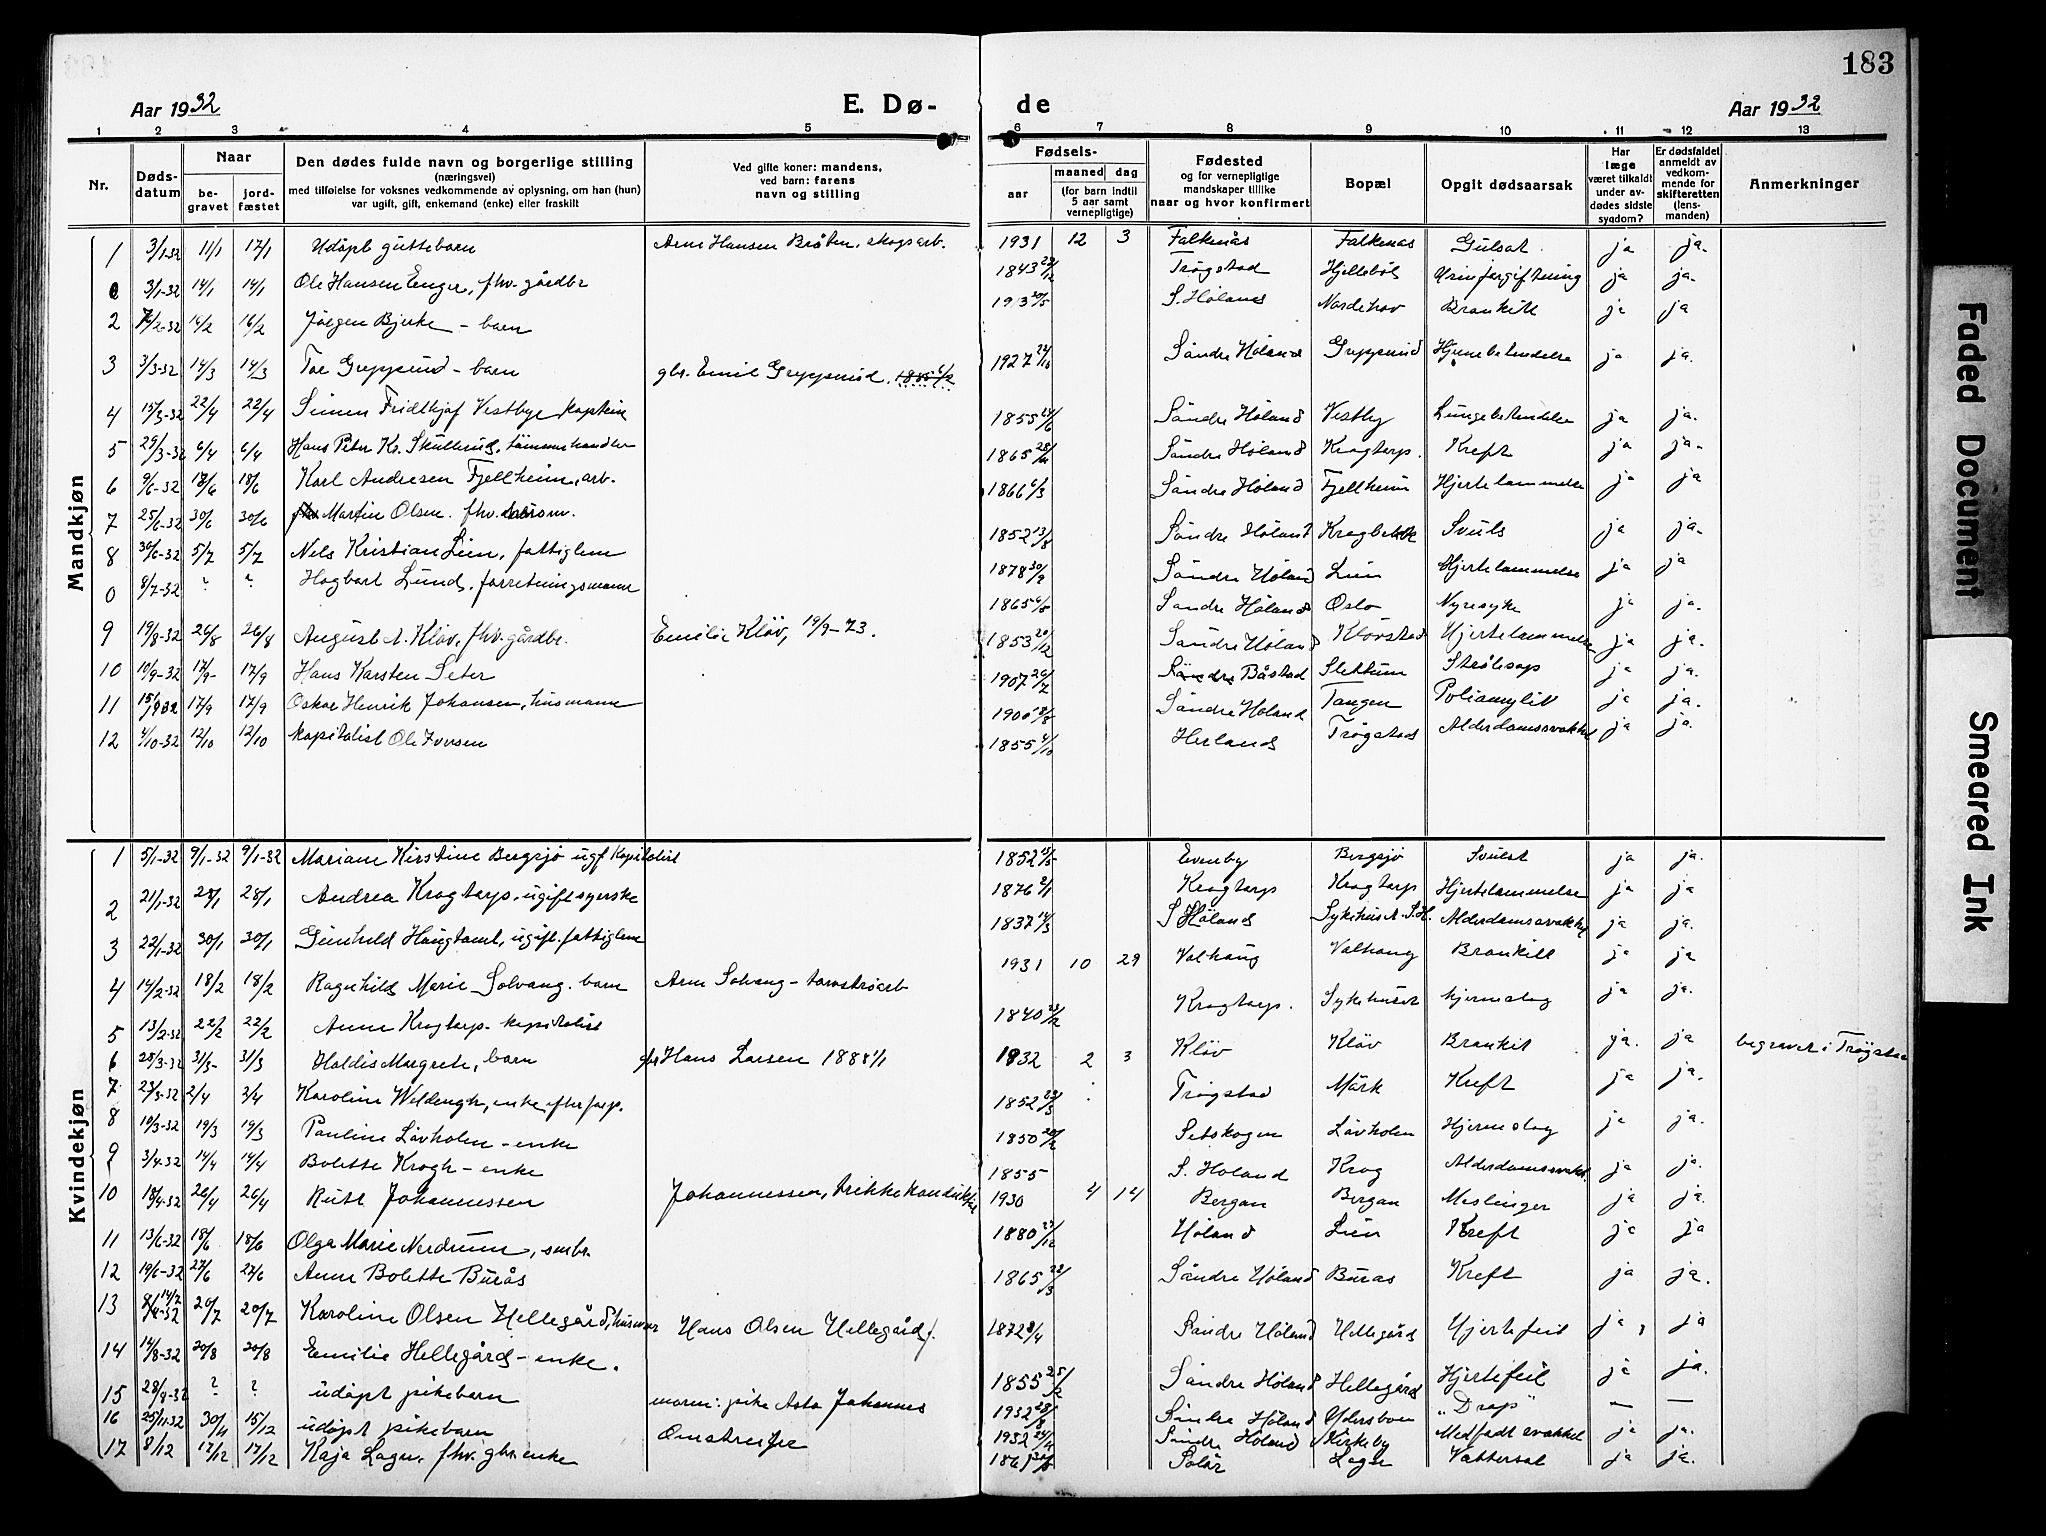 183
Aar 1932 E. Dø- de Aar 1932
1 2 3 4 5 6 7 8 9 10 11 12 13
Nr.
Døds-datum
Naar
be-gravet
jord-fæstet
Den dødes fulde navn og borgerlige stilling
(næringsvei)
med tilføielse for voksnes vedkommende av oplysning, om han (hun)
var ugift, gift, enkemand (enke) eller fraskilt
Ved gifte koner: mandens,
ved barn: farens
navn og stilling
Fødsels-
aar
maaned dag
(for barn indtil
5 aar samt
vernepligtige)
Fødested
og for vernepligtige
mandskaper tillike
naar og hvor konfirmert
Bopæl
Opgit dødsaarsak
Har
læge
været tilkaldt
under av-
dødes sidste
sygdom?
Er dødsfaldet
anmeldt av
vedkom-
mende for
skifteretten
(lens-
manden)
Anmerkninger
Mandkjøn
1 3/1-32 11/1 17/1 Udøpt guttebarn Arne Hansen Bråten, skogsarb. 1931 12 3 Falkenås Falkenås Gulsot ja ja.
3/1-32 14/1 14/1 Ole Hansen Enger, fhv. gårdbr 1843 Trøgstad Hjellebøl Urinforgiftning ja ja.
2 16/2 Jørgen Bjerke - barn 1913 S. Høland Nordehov Brankitt ja ja
3 3/3-32 14/3 14/3 Tor Gryppsund - barn gbr. Emil Gryppsund. 1927 Søndre Høland ja ja.
4 15/3-32 22/4 22/4 Simen Fridthjof Vestbye kaptein 1855 Søndre Høland Vestby Lungebetendelse ja ja.
5 29/3-32 6/4 6/4 Hans Peter Kr. Skullerud, tømmerhandler 1865 Søndre Høland Krogtorp. Kreft ja ja.
6 9/6-32 18/6 18/6 Karl Andresen Fjellheim, arb. 1866 6/3 Søndre Høland Fjellheim Hjertelammelse ja ja
7 25/6-32 30/6 30/6 Martin Olsen. fhv. 1852 13/8 Søndre Høland Svuls ja ja.
8 30/6-32 5/7 5/7 Nels Kristian Lien, fattiglem 1878 Søndre Høland Lien Hjertelammelse ja ja
0 8/7-32 ? ? Hagbart Lund, forretningsmann 1865 Søndre Høland Oslo Nyresyke ja ja.
9 19/8-32 26/8 26/8 August A. Kløv, fhv. gårdbr. Emilie Kløv, 19/9-73. 1853 20/12 Søndre Høland Kløvstad Hjertelammelse ja ja.
10 10/9-32 17/9 17/9 Hans Karsten Seter 1907 26/7 Båstad Slettum ja ja.
11 17/9 17/9 Oskar Henrik Johansen, husmann 1900 Søndre Høland Tangen ja ja.
12 4/10-32 12/10 12/10 Kapitalist Ole Iversen 1855 4/10 Herland Trøgstad Alderdomssvakhet ja ja.
Kvindekjøn
1 5/1-32 9/1-32 9/1-32 Mariane Kirstine Bergsjø ugf Kapitalist 1852 Evenby Bergsjø Svulst ja ja.
2 21/1-32 28/1 28/1 Andrea Krogtorp, ugift syerske 1876 2/1 Krogtorp Krogtorp Hjertelammelse ja ja
3 22/1-32 30/1 30/1 Gunhild Haugtomt, ugift. fattiglem 1837 14/3 S Høland Sykehuset. S.H. Alderdomssvakhet ja ja.
4 14/2-32 18/2 18/2 Ragnhild Marie Solvang. barn Arne Solvang - torvstrøarb 1931 10 29 Valhaug Valhaug Brankitt ja ja
5 13/2-32 22/2 22/2 Anne Krogtorp - kapitalist 1840 Krogtorp. Sykehuset hjerneslag ja ja.
6 28/3-32 31/3- 31/3 Haldis Margrete, barn gbr Hans Larsen 1932 2 3 Kløv Kløv Brankit ja. ja begravet i Trøgstad
7 23/3-32 2/4 2/4 Karoline Weldengh, enke 1852 Trøgstad Mørk Kreft ja ja.
8 10/3-32 19/3 19/3 Pauline Løvholen - enke 1850 20/2 Setskogen Løvholen Hjerneslag ja ja.
9 3/4-32 14/4 14/4 Bolette Krogh - enke 1855 S. Høland Krog Alderdomssvakh. ja ja.
10 18/4-32 26/4 26/4 Ruth Johannessen Johannessen, trikkekonduktør 1930 4 14 Bergan Bergan Meslinger ja ja.
11 13/6-32 18/6 18/6 Olga Marie Nerdrum, småbr. 1880 Høland Lien Kreft ja ja
12 19/6-32 27/6 27/6 Anne Bolette Burås 1865 Søndre Høland Burås Kreft ja ja.
13 20/7 20/7 Karoline Olsen Hellegård, Hans Olsen Hellegård 1872 Søndre Høland Hellegård Hjertefeil ja ja
14 14/8-32 20/8 20/8 Emilie Hellegård - enke. 1855 25/2 Søndre Høland Hellegård Hjertefeil ja ja.
15 28/8-32 ? ? udøpt pikebarn moren: pike Asta Johannes 1932 28/8 Søndre Høland "Drap" — —
16 25/11-32 15/12 udøpt pikebarn Omstreifer 1932 Søndre Høland Kirkeby Medfødt svakhet ja ja.
17 8/12 17/12 17/12 Kaja Lager, fhv. gbr. enke Solør Lager Vattersot ja ja.
Faded Document
Smeared Ink